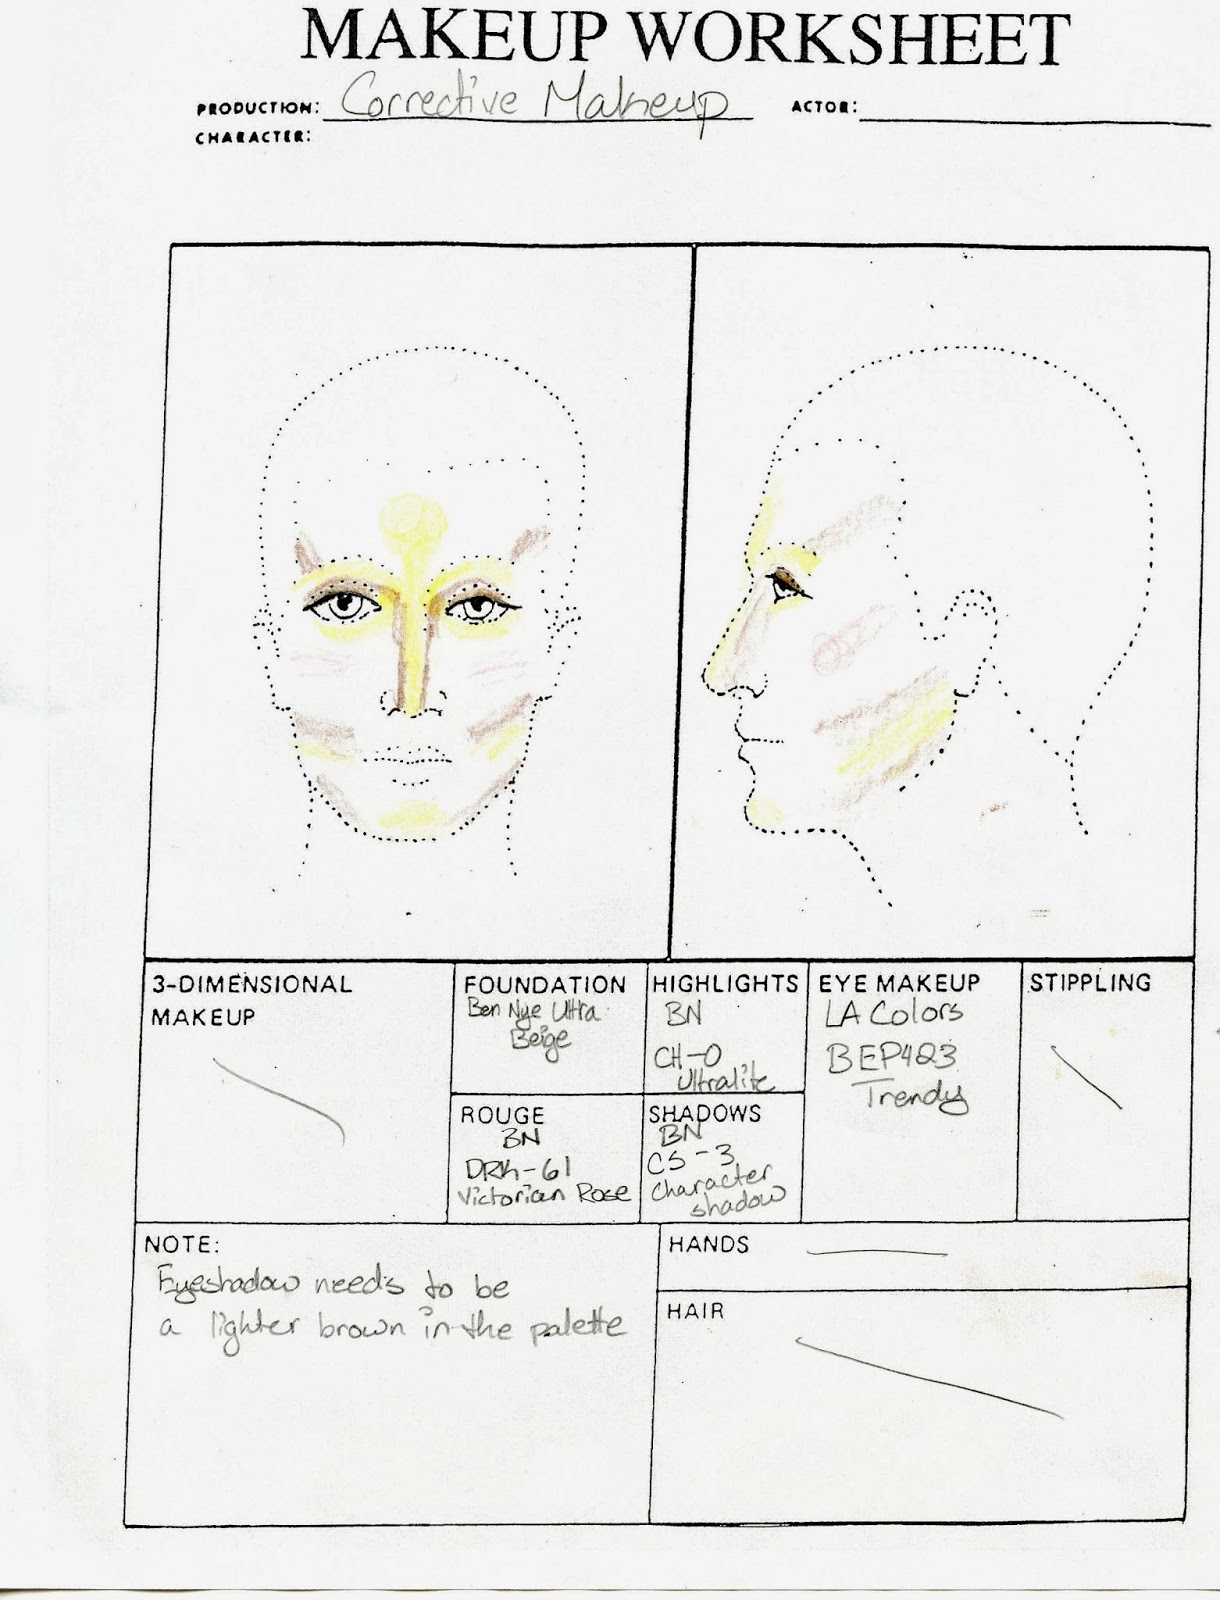 MAKEUP WORKSHEET
PRODUCTION: Corrective Makeup ACTOR:
CHARACTER:
3-DIMENSIONAL
MAKEUP
FOUNDATION
Ben Nye Ultra
Beige
HIGHLIGHTS
BN
CH-0
Ultralite
EYE MAKEUP
LA Colors
BEP423
Trendy
STIPPLING
ROUGE
BN
DRK-61
Victorian Rose
SHADOWS
BN
CS-3
Character
shadow
NOTE:
Eyeshadow needs to be
a lighter brown in the palette
HANDS
HAIR